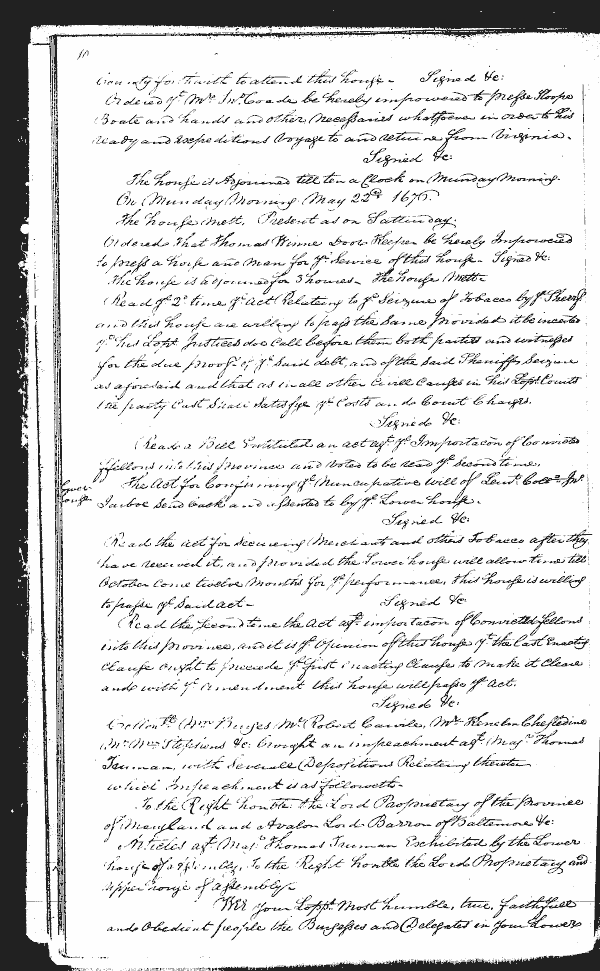 10
County for Truth to attend this house – Signed &c:
Ordered yt. Mr. Jno. Coade be hereby impowered to presse Sloope
Boate and hands and other necessaries whatsoever in order to his
ready and Expeditious Voyage to and returne from Virginia.
Signed &c:
The house is Adjourned till ten a Clock on Munday Morning
On Munday Morning May 22d. 1676.
The house mett. Present as on Satturday.
Ordered That Thomas Winne Door Keeper be hereby Impowered
to press a horse and man for ye. Service of this house – Signed &c:
The house is adjourned for 3 houres – The house Mett –
Read ye. 2d. time ye. Act Relating to ye. Seizure of Tobacco by ye. Sheriff
and this house are willing to pass the same Provided it be incerted
yt. his Lopps. Justices doe Call before them both parties and wittnesses
for the due proofe of ye. said debt, and of the said Sheriffs Seizure
as aforesaid and that as in all other Civill Causes in his Lopps. Courts
the party Cast Shall Satisfye ye. Costs and Court Charges.
Signed &c:
Read a Bill Entituled an act agt. ye. Importacon of Convicted
ffellons into this Province and Voted to be read ye. Second time.
Lower house
The Act for Confirming ye. Nuncupative will of Leut. Collo. Jno.
Jarboe Send back and assented to by ye. Lower house.
Signed &c:
Read the act for Secureing Merchants and others Tobacco after they
have received it, and Provided the Lower house will allow time till
October Come twelve months for ye. performance, this house is willing
to passe ye. said act – Signed &c
Read the Second time the Act agt. importacon of Convicted ffellons
into this Province, and it is ye. Opinion of this house yt. the last Enacting
Clause ought to precede ye. first Enacting Clause to make it Cleare
and with yt. amendment this house will passe ye. Act.
Signed &c:
Wm. Burges Mr. Robert Carvile, Mr. Kenelm Cheseldine
Mr. Wm. Stephens &c: brought an impeachment agt. Majr. Thomas
Truman, with Severall Depositions Relating thereto
which Impeachment is as followeth –
To the Right honble. the Lord Proprietary of the Province
of Maryland and Avalon Lord Barron of Baltemore &c:
Articles agt. Majr. Thomas Truman Exhibited by the Lower
house of assembly, To the Right honble the Lord Proprietary and
upper house of assembly –
Wee your Lopps. Most humble, true, faithfull
and Obedient people the Burgesses and Delegates in your Lower